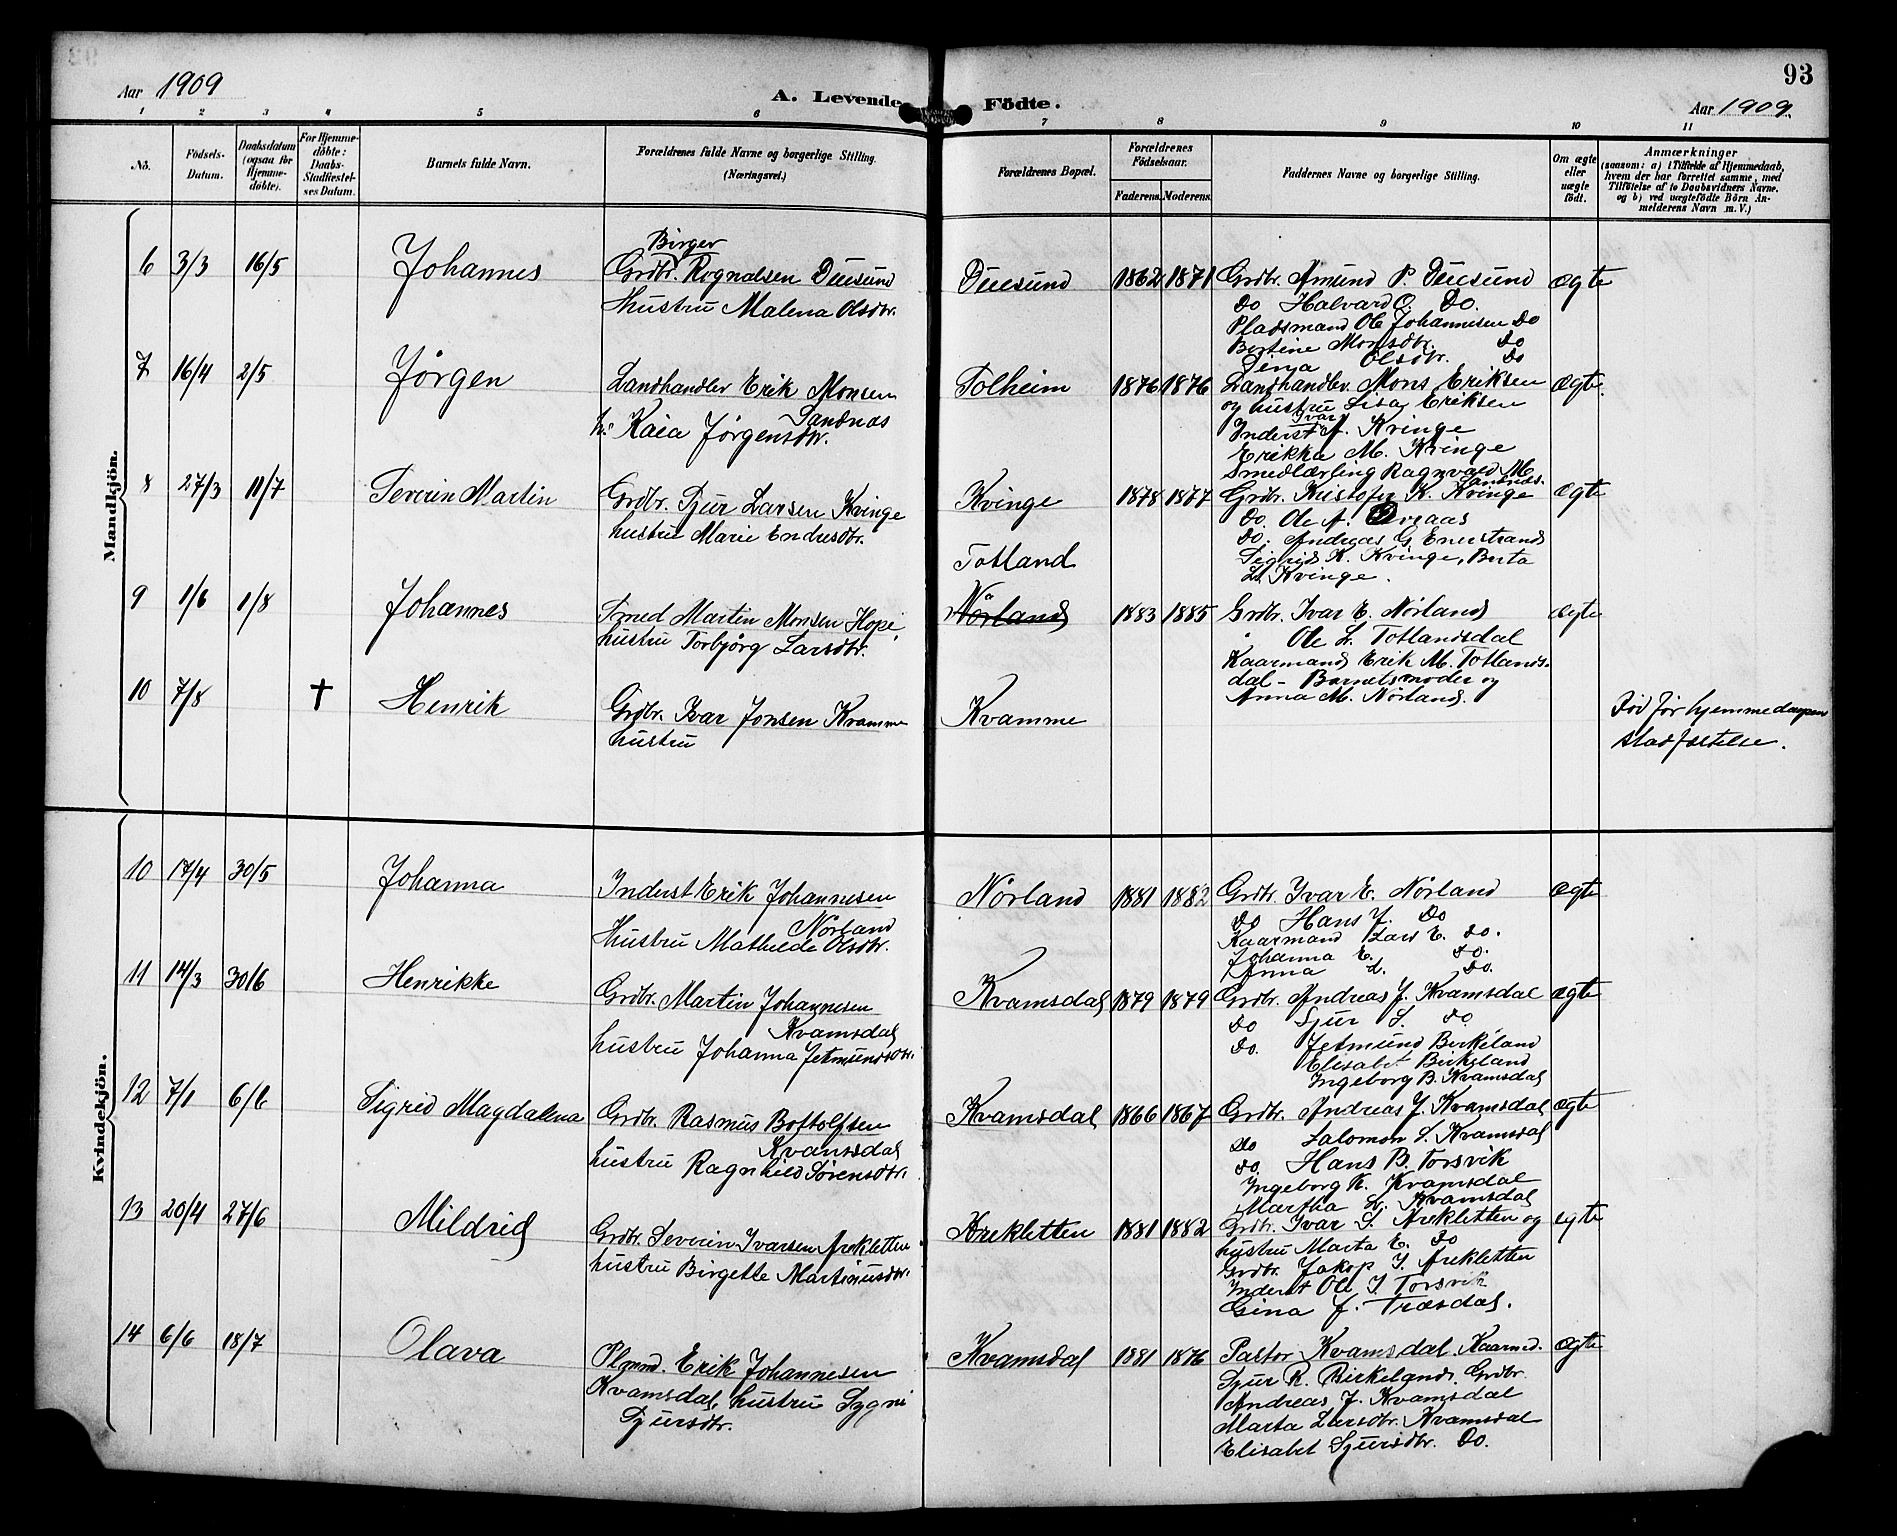 93
Aar 1909
A. Levende Födte.
Aar 1909.
1 2 3 4 5 6 7 8 9 10 11
Nö.
Födsels-
Datum.
Daabsdatum
(ogsaa for
Hjemme-
döbte).
For Hjemme-
döbte:
Daabs-
Stadfæstel-
ses Datum.
Barnets fulde Navn.
Forældrenes fulde Navne og borgerlige Stilling.
(Næringsvei.)
Forældrenes Bopæl.
Forældrenes
Födselsaar.
Faderens. Moderens.
Faddernes Navne og borgerlige Stilling.
Om ægte
eller
uægte
födt.
Anmærkninger
(saasom: a) i Tilfælde af Hjemmedaab,
hvem der har forrettet samme, med
Tilföielse af to Daabsvidners Navne.
og b) ved uægtefödte Börn An-
melderens Navn m. V.)
Mandkjön.
6 3/3 16/5 Johannes
Birger
Grdbr. Rognalsen Duesund
Hustru Malena Olsdtr.
Duesund 1862 1871
Grdbr. Amund P. Duesund
Do Halvard O. Do.
Pladsmand Ole Johannesen Do
Bertine Monsdtr. Do
Olsdtr. Do
ægte
7 16/4 2/5 Jörgen
Landhandler Erik Monsen
Sandnæs
h. Kaia Jörgensdtr.
Solheim 1876 1876
Landhandler. Mons Eriksen
og hustru Lisa Eriksen
Ivar
Inderst A. Kvinge
Erikka M. Kvinge
Smedlærling Ragnvald M.
Sandnes.
ægte.
8 27/3 11/7 Severin Martin
Grdbr. Sjur Larsen Kvinge
hustru Marie Endresdtr.
Kvinge 1878 1877
Grdbr. Kristofer K. Kvinge
Do. Ole A.
Do. Andreas G. Enerstrand
Sigrid K. Kvinge, Berta
L. Kvinge.
ægte
9 1/6 1/8 Johannes
Smed Martin Monsen Hope,
hustru Torbjörg Larsdtr.
Totland
Nörland 1883 1885
Grdbr. Ivar E. Nörland
" Ole L. Totlandsdal
Kaarmand Erik M. Totlands-
dal - Barnetsmoder og
Anna M. Nörland.
ægte
10 7/8 † Henrik
Grdbr. Ivar Jonsen Kvamme
hustru
Kvamme
Död för hjemmedaapen
stadfæstelse.
Kvindekjön.
10 17/4 30/5 Johanna
Inderst Erik Johannesen
Nörland
Hustru Mathilde Olsdtr.
Nörland 1881 1882
Grdbr. Ivar E. Nörland
Do Hans J. Do
Kaarmand Lars E. do.
Johanna E. Do.
Anna L. Do.
ægte
11 14/3 30/6 Henrikke
Grdbr. Martin Johannesen
Kvamsdal
hustru Johanna Jetmundsdtr.
Kvamsdal 1879 1879
Grdbr. Andreas J. Kvamsdal
Do Sjur S. do
Do. Jetmund Birkeland
Elisabet Birkeland
Ingeborg B. Kvamsdal
ægte
12 7/1 6/6 Sigrid Magdalena
Grdbr. Rasmus Bottolfsen
Kvamsdal
hustru Ragnhild Sörensdtr.
Kvamsdal 1866 1867
Grdbr. Andreas J. Kvamsdal
Do Salomon S. Kvamsdal
do. Hans B. Torsvik
Ingeborg R. Kvamsdal
Martha H. Kvamsdal
ægte
13 20/4 27/6 Mildrid
Grdbr. Severin Ivarsen Arekletten
hustru Birgette Martinusdtr.
Arekletten 1881 1882
Grdbr. Ivar S. Arekletten og
hustru Marta E. Do
Grdbr. Jakop I. Arekletten
Inderst Ole I. Torsvik
Gina J. Træsdal.
egte
14 6/6 18/7 Olava
Plsmnd. Erik Johannesen
Kvamsdal, hustru Sygni
Sjursdtr.
Kvamsdal 1881 1876
Pastor Kvamsdal. Kaarmd.
Sjur R. Birkeland. Grdbr.
Andreas J. Kvamsdal
Marta Larsdtr. Kvamsdal
Elisabet Sjursdtr. Do.
ægte